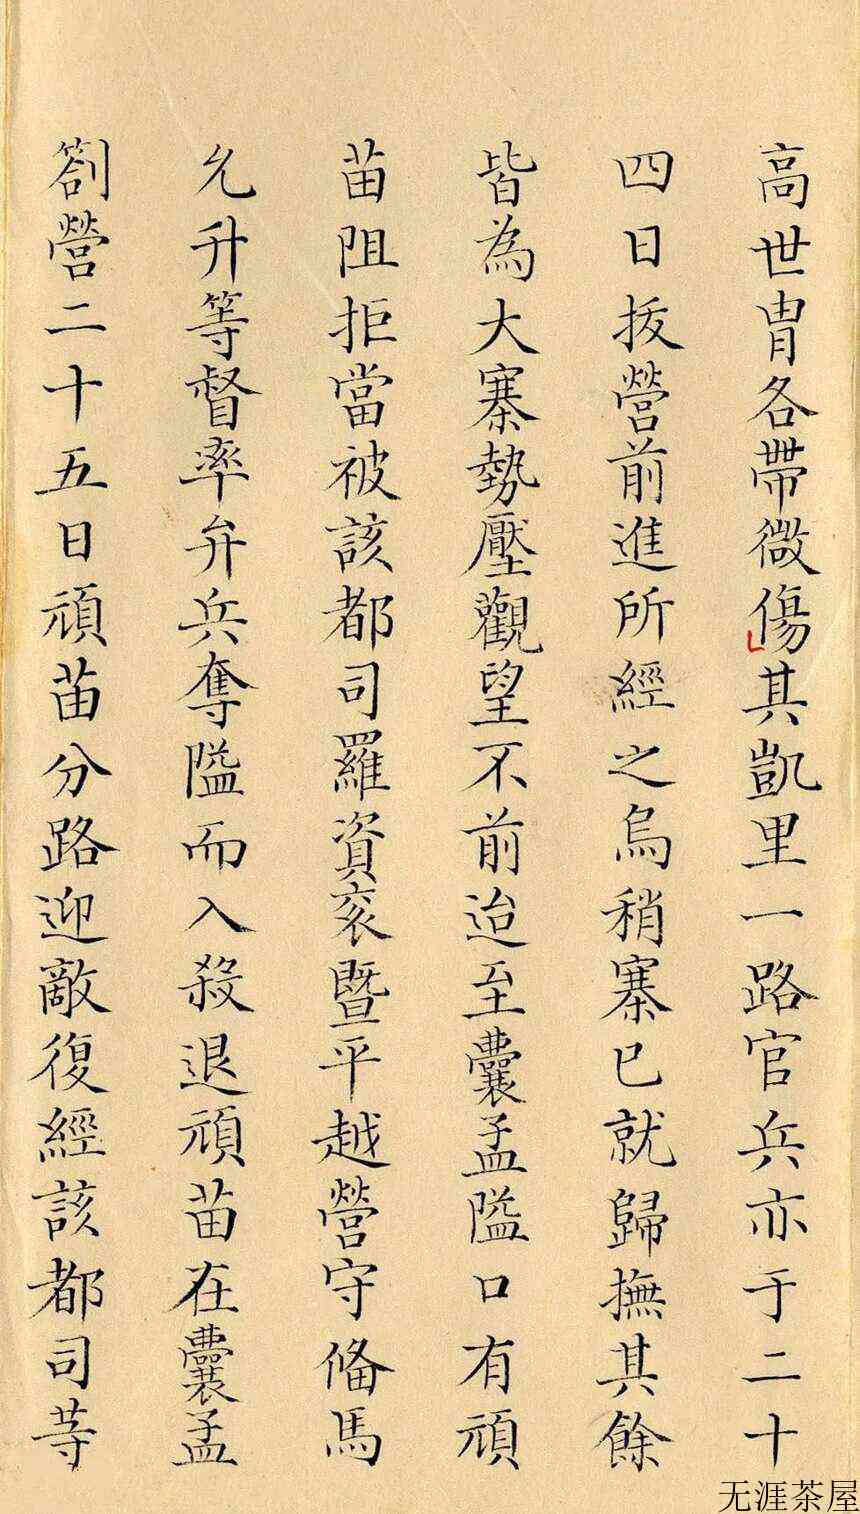 高世冑各帶微傷其凱里一路官兵亦于二十
四日拔營前進所經之烏稍寨已就歸撫其餘
皆為大寨勢壓觀望不前迨至囊孟隘口有頑
苗阻拒當被該都司羅資袞暨平越營守俻馬
允升等督率弁兵奪隘而入殺退頑苗在囊孟
劄營二十五日頑苗分路迎敵復經該都司等
无涯茶屋